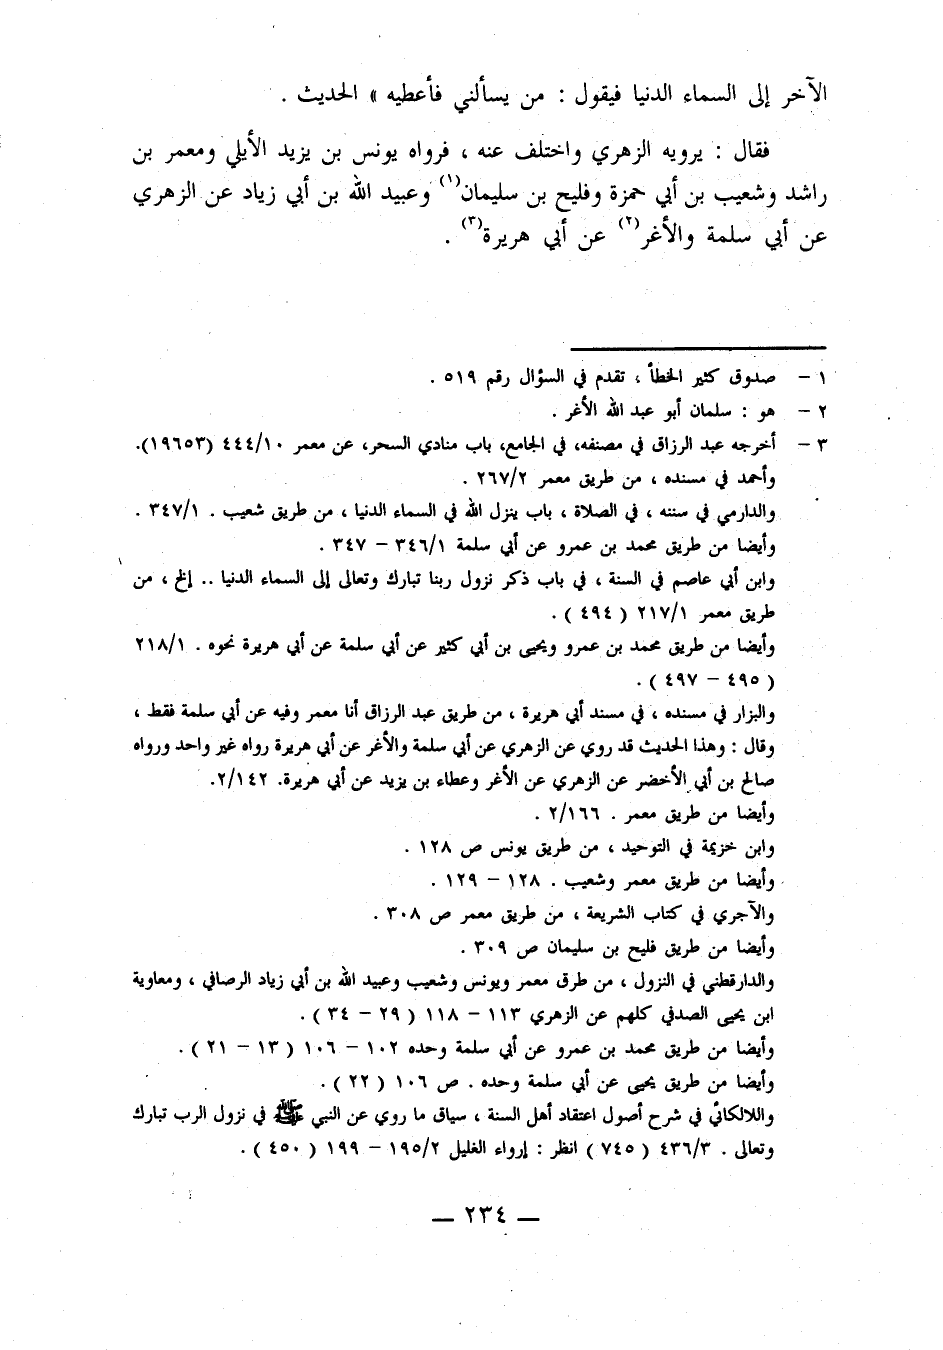 الآخر إلى السماء الدنيا فيقول : من يسألني فأعطيه » الحديث .
فقال : يرويه الزهري واختلف عنه ، فرواه يونس بن يزيد الأيلي ومعمر بن
راشد وشعيب بن أبي حمزة وفليح بن سليمان(١) وعبيد الله بن أبي زياد عن الزهري
عن أبي سلمة والأغر(٢) عن أبي هريرة(٣) .
١ – صدوق كثير الخطأ ، تقدم في السؤال رقم ٥١٩ .
٢ – هو : سلمان أبو عبد الله الأغر .
٣ – أخرجه عبد الرزاق في مصنفه، في الجامع، باب منادي السحر، عن معمر ٤٤٤/١٠ (١٩٦٥٣).
وأحمد في مسنده ، من طريق معمر ٢٦٧/٢ .
والدارمي في سننه ، في الصلاة ، باب ينزل الله في السماء الدنيا ، من طريق شعيب . ٣٤٧/١ .
وأيضا من طريق محمد بن عمرو عن أبي سلمة ٣٤٦/١ – ٣٤٧ .
وابن أبي عاصم في السنة ، في باب ذكر نزول ربنا تبارك وتعالى إلى السماء الدنيا .. إلخ ، من
طريق معمر ٢١٧/١ ( ٤٩٤ ) .
وأيضا من طريق محمد بن عمرو ويحيى بن أبي كثير عن أبي سلمة عن أبي هريرة نحوه . ٢١٨/١
( ٤٩٥ – ٤٩٧ ) .
والبزار في مسنده ، في مسند أبي هريرة ، من طريق عبد الرزاق أنا معمر وفيه عن أبي سلمة فقط ،
وقال : وهذا الحديث قد روي عن الزهري عن أبي سلمة والأغر عن أبي هريرة رواه غير واحد ورواه
صالح بن أبي الأخضر عن الزهري عن الأغر وعطاء بن يزيد عن أبي هريرة. ٢/١٤٢.
وأيضا من طريق معمر . ٢/١٦٦ .
وابن خزيمة في التوحيد ، من طريق يونس ص ١٢٨ .
وأيضا من طريق معمر وشعيب . ١٢٨ – ١٢٩ .
والآجري في كتاب الشريعة ، من طريق معمر ص ٣٠٨ .
وأيضا من طريق فليح بن سليمان ص ٣٠٩ .
والدارقطني في النزول ، من طرق معمر ويونس وشعيب وعبيد الله بن أبي زياد الرصافي ، ومعاوية
ابن يحيى الصدفي كلهم عن الزهري ١١٣ – ١١٨ ( ٢٩ – ٣٤ ) .
وأيضا من طريق محمد بن عمرو عن أبي سلمة وحده ١٠٢ – ١٠٦ ( ١٣ – ٢١ ) .
وأيضا من طريق يحيى عن أبي سلمة وحده . ص ١٠٦ ( ٢٢ ) .
واللالكائي في شرح أصول اعتقاد أهل السنة ، سياق ما روي عن النبي ﷺ في نزول الرب تبارك
وتعالى . ٤٣٦/٣ ( ٧٤٥ ) انظر : إرواء الغليل ١٩٥/٢ – ١٩٩ ( ٤٥٠ ) .
— ٢٣٤ —